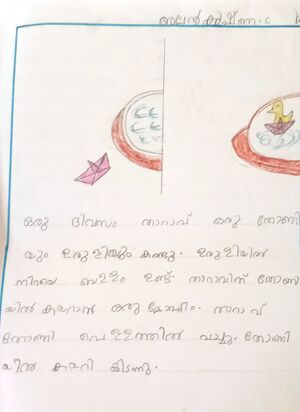 അലൻ കൃഷ്ണ. c
ഒരു ദിവസം താറാവ് ഒരു തോണി
യും ഉരുളിയും കണ്ടു. ഉരുളിയിൽ
നിറയെ ബള്ളം ഉണ്ട്. താറാവിന് തോണി
യിൽ കയറാൻ ഒരു മോഹം. താറാവ്
തോണി വെള്ളത്തിൽ വച്ചു. തോണി
യിൽ കയറി കിടന്നു.